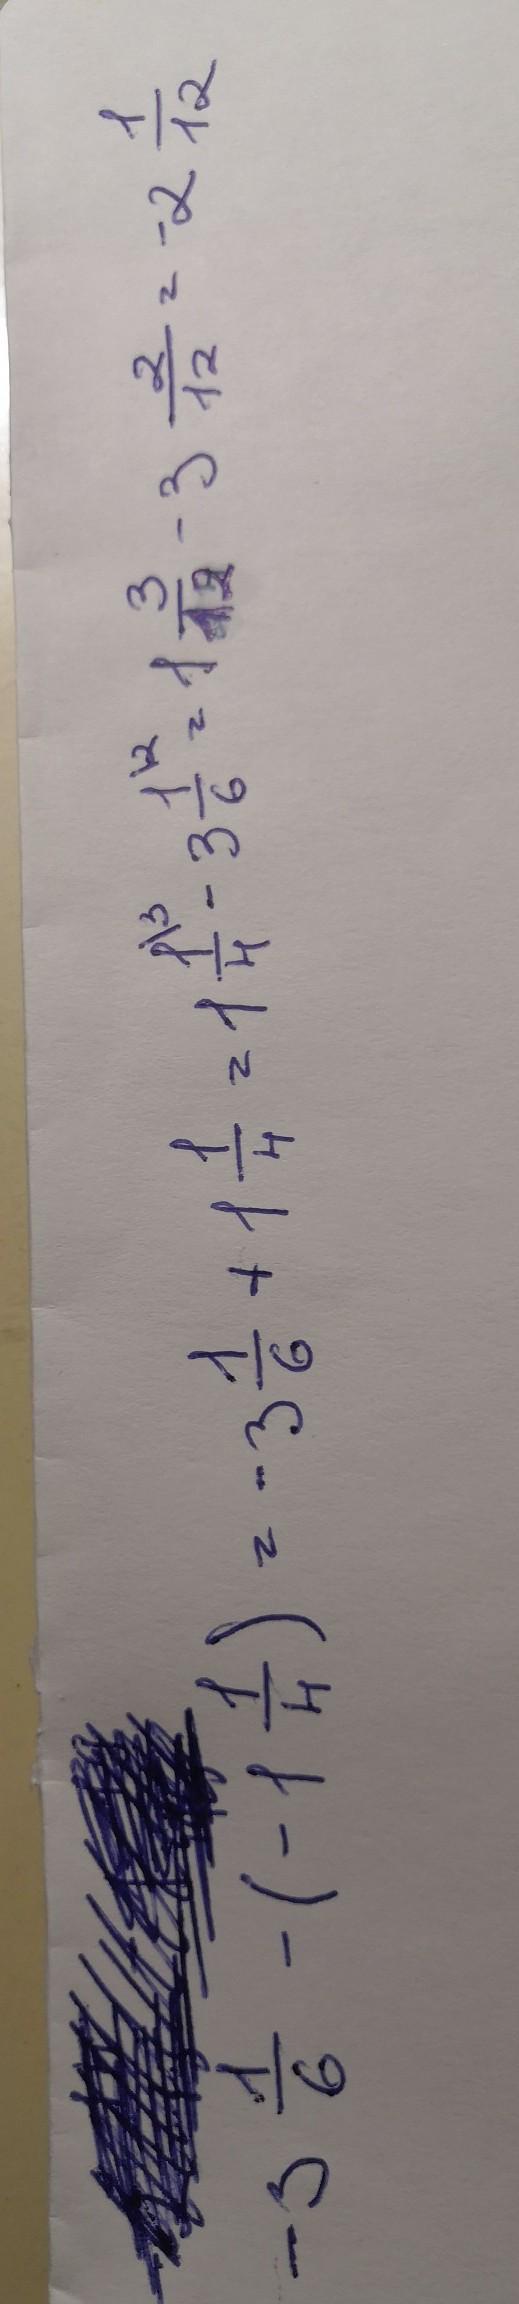 -3 1/6 - (-1 1/4) = -3 1/6 + 1 1/4 = 1 1\3/4 - 3 1\2/6 = 1 3/12 - 3 2/12 = -2 1/12